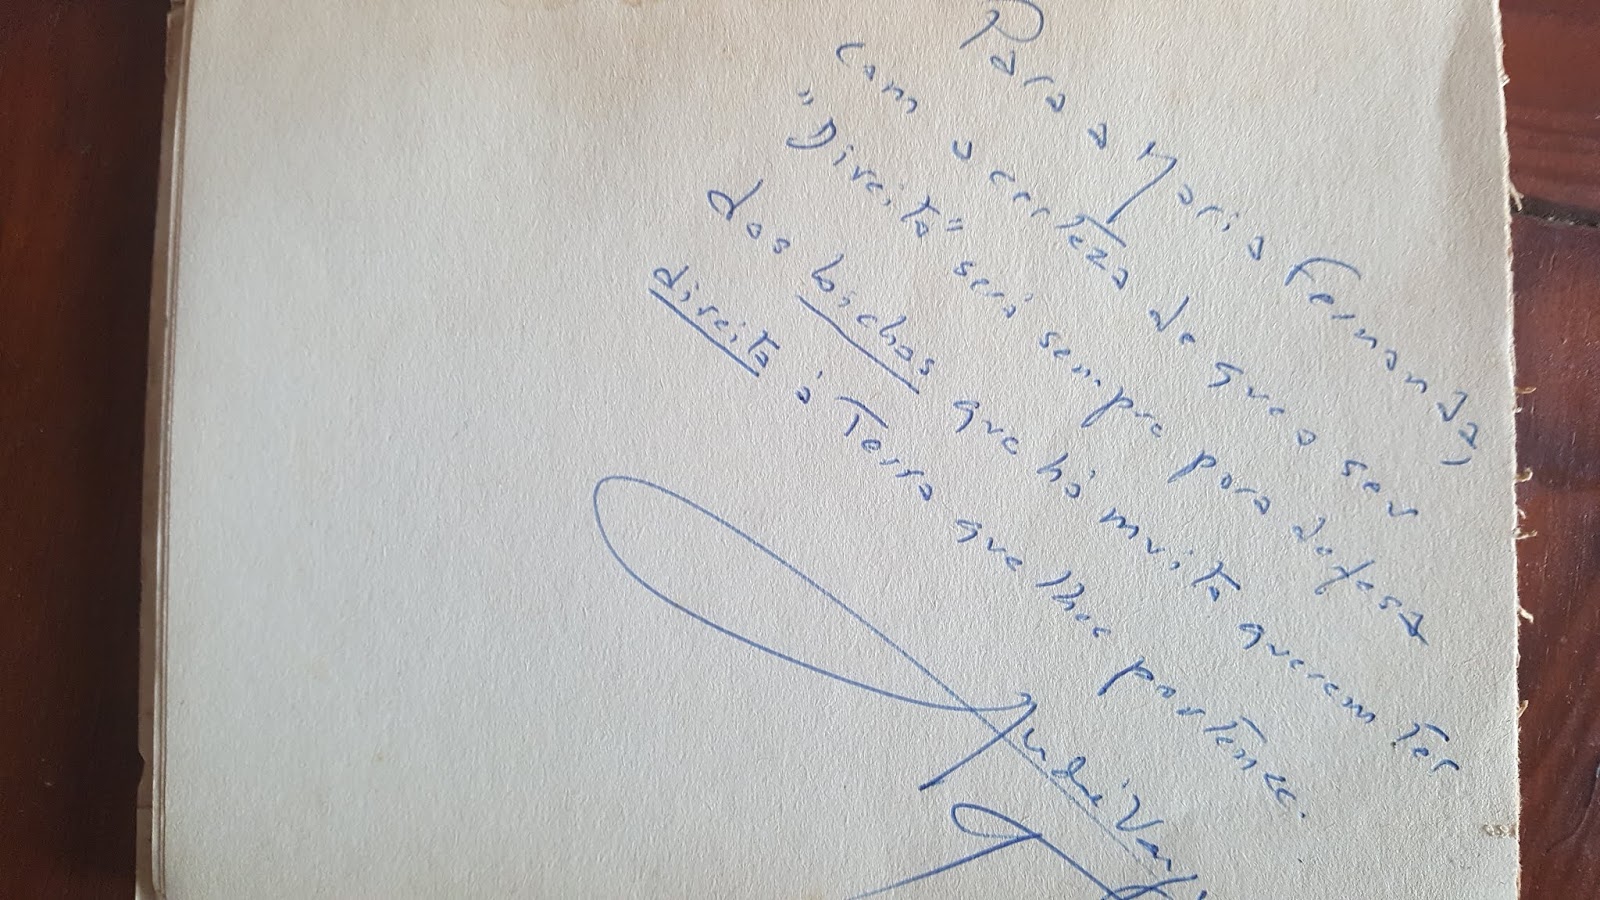 Para a Maria Fernanda,
com a certeza de que o seu
"Direito" será sempre para defesa
dos bichos que há muito querem ter
direito à Terra que lhes pertence.
André